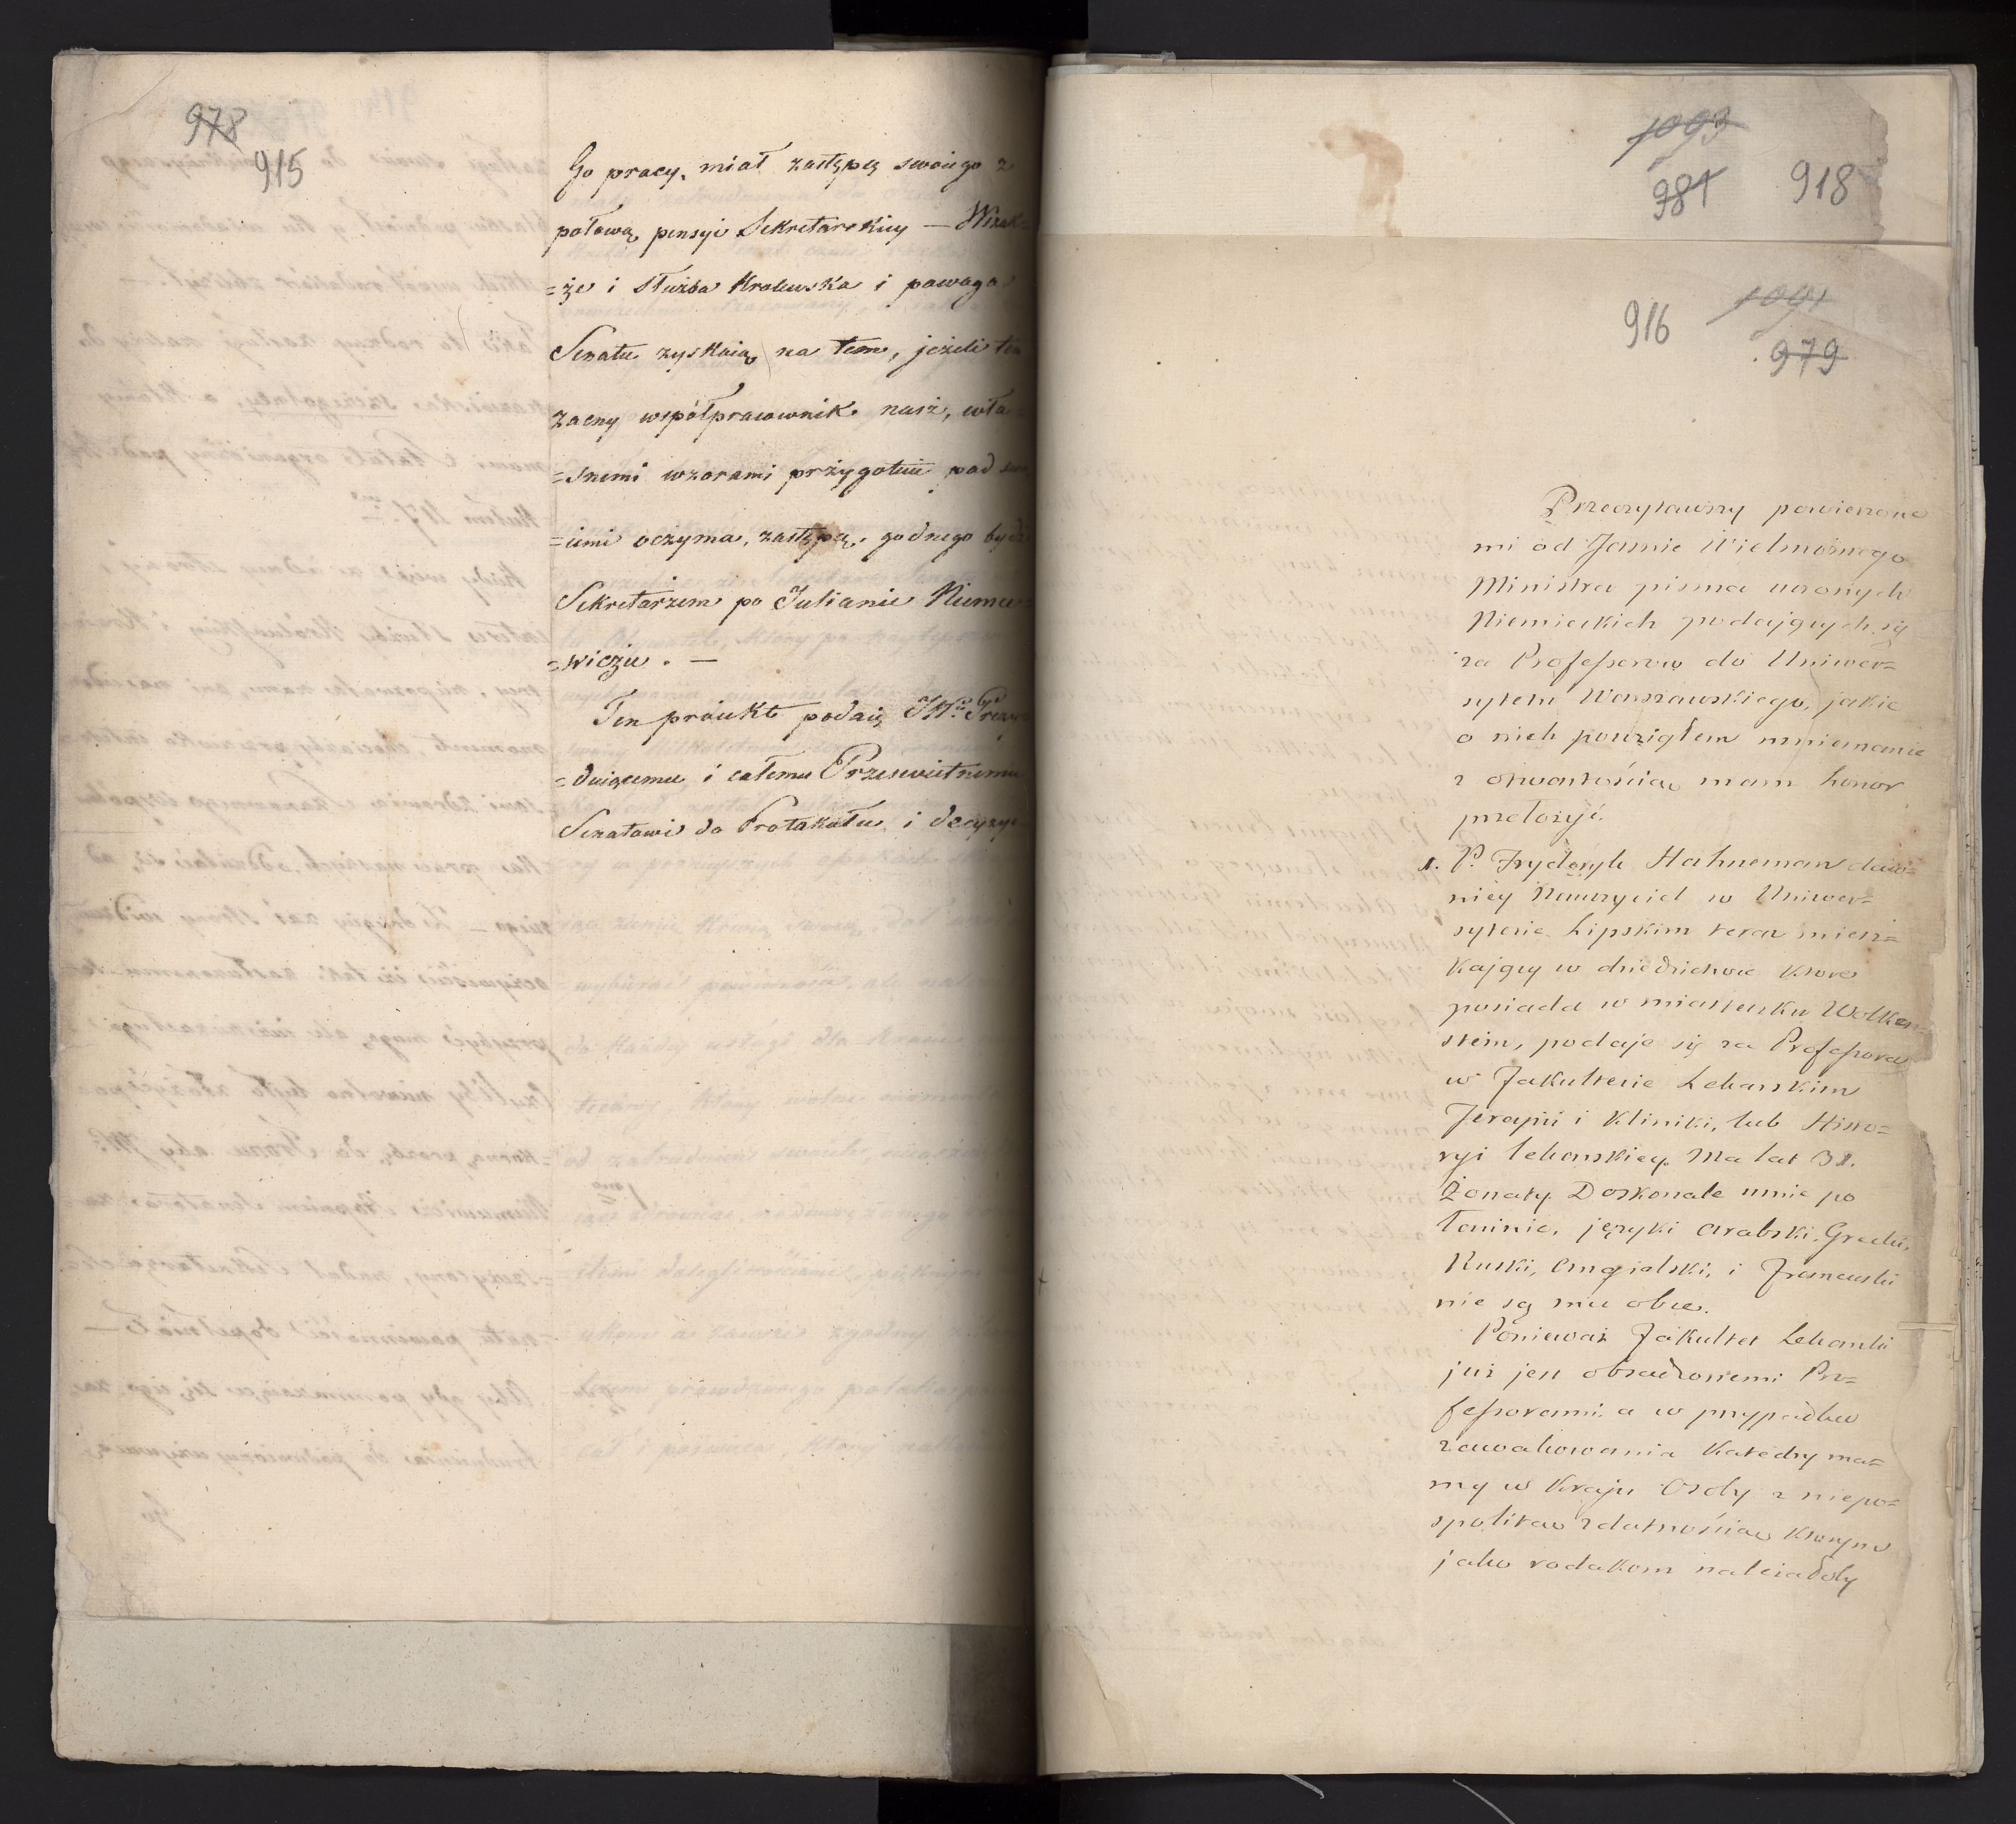 978
915
Go pracy, miał zastępcę swoiego z
połową pensyi Sekretarskiey — Wszak=
=że i służba Krolewska i powaga
Senatu zyskaią na tem, jeżeli ten
zacny współpracownik nasz, wła=
=snemi wzorami przygotuie pod swo
=iemi oczyma, zastępcę, godnego bydź
Sekretarzem po Julianie Niemce=
=wiczu. —
Ten proiekt podaię JW.
=duiącemu i całemu Prześwietnemu
Senatowi do Protokułu i decyzyi
1093
981 918
916 1091
979
Przeczytawszy powierzone
mi od Jaśnie Wielmożnego
Ministra pisma uczonych
Niemieckich podających się
za Professorów do Uniwer=
sytetu Warszawskiego, jakie
o nich powziąłem mniemanie
z otwartością mam honor
przełożyć.
1. P. Fryderyk Hahneman daw=
niey Nauczyciel w Uniwer=
sytecie Lipskim teraz miesz=
kający w dziedzictwie które
posiada w miasteczku Wolken=
stein, podaje się za Professora
w Fakultecie Lekarskim
Terapii i Kliniki, lub Histo=
ryi lekarskiey. Ma lat 31.
Żonaty. Doskonale umie po
łacinie, języki Arabski, Grecki,
Ruski, Angialski, i Francuski
nie są mu obce.
Ponieważ Fakultet Lekarski
już jest obsadzonemi Pro=
fessorami a w przypadku
zawakowania Katedry ma=
my w Kraju Osoby z niepo=
spolitą zdatnością którym
jako rodakom należałoby